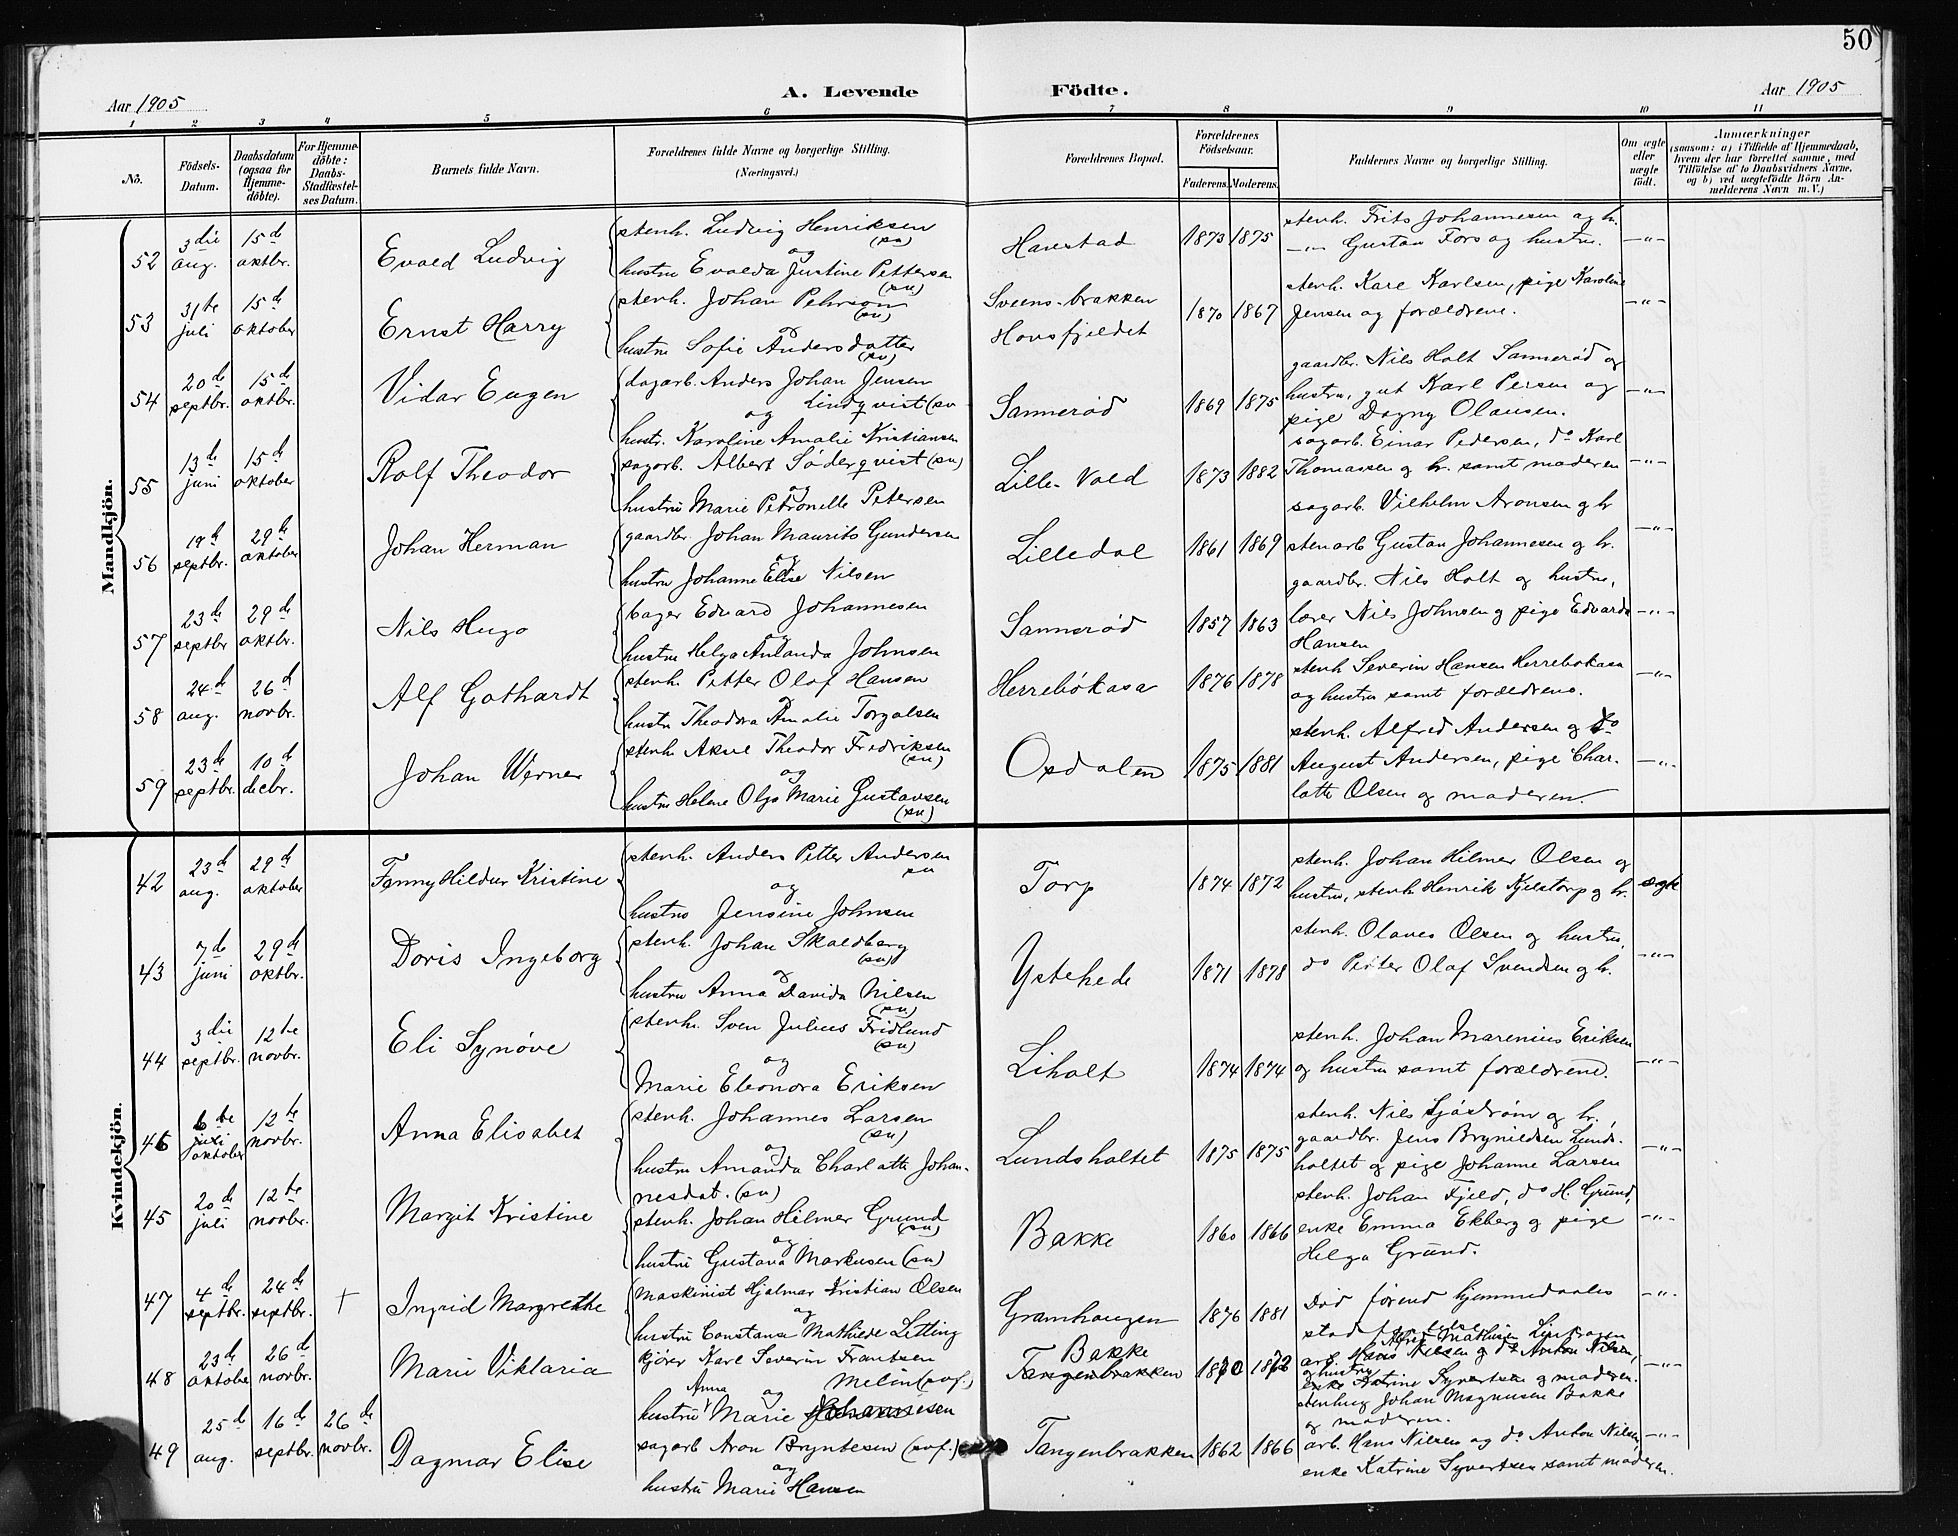 50
Aar 1905
A. Levende Födte.
Aar 1905
1 2 3 4 5 6 7 8 9 10 11
No.
Födsels-Datum.
Daabsdatum (ogsaa for Hjemme-döbte).
For Hjemme-döbte: Daabs-Stadfæstel-ses Datum.
Barnets fulde Navn.
Forældrenes fulde Navne og borgerlige Stilling. (Næringsvei.)
Forældrenes Bopæl.
Forældrenes Födselsaar.
Faderens. Moderens.
Faddernes Navne og borgerlige Stilling.
Om ægte eller uægte födt.
Anmærkninger (saasom: a) i Tilfælde af Hjemmedaab, hvem der har forrettet samme, med Tilföielse af to Daabsvidners Navne, og b) ved uægtefödte Börn An-melderens Navn m. V.)
Mandkjön.
52 3die aug. 15de oktbr. Evald Ludvig
stenh. Ludvig Henriksen (sv)
og
hustru Evalda Justine Pettersen (sv)
Havstad 1873 1875
stenh. Frits Johannesen og h.
—"— Gustav Fors og hustru. —"—
53 31te juli 15de oktober Ernst Harry
stenh. Johan Pehrson (sv)
og
hustru Sofie Andersdatter (sv)
Sveens-brakken
Hovsfjeldet 1870 1867
stenh. Karl Karlsen, pige Karoline
Jensen og forældrene. —"—
54 20de septbr. 15de oktbr. Vidar Eugen
dagarb. Anders Johan Jensen
og Lindqvist (sv
hustr. Karoline Amalie Kristiansen
Sannerød 1869 1875
gaardbr. Nils Holt Sannerød og
hustru, gut Karl Persen og
pige Dagny Olausen. —"—
55 13de juni 15de oktober Rolf Theodor
sagarb. Albert Söderqvist (sv)
og
hustru Marie Petronelle Petersen
Lille-Vold 1873 1882
sagarb. Einar Pedersen, do Karl
Thomassen og h. samt moderen —"—
56 19de septbr. 29de oktober Johan Herman
gaardbr. Johan Maurits Gundersen
og
hustru Johanne Elise Nilsen
Lilledal 1861 1869
sagarb. Vilhelm Aronsen og h
stenarb Gustav Johannesen og h. —"—
57 23de septbr 29de oktbr. Nils Hugo
bager Edvard Johannesen
og
hustru Helga Amanda Johnsen
Sannerød 1857 1863
gaardbr. Nils Holt og hustru,
lærer Nils Johnsen og pige Edvarda
Hansen —"—
58 24de aug. 26de novbr. Alf Gothardt
stenh. Petter Olaf Hansen
og
hustru Theodora Amalie Torgalsen
Herrebökasa 1876 1878
stenh Severin Hansen Herrebokasa
og hustru samt forældrene. —"—
59 23de septbr. 10de decbr. Johan Werner
stenh. Aksel Theodor Fredriksen (sv)
og
hustru Helene Olga Marie Gustavsen (sv)
Osdalen 1875 1881
stenh. Alfred Andersen og do
August Andersen, pige Char-
lotte Olsen og moderen. —"—
Kvindekjön.
42 23de aug. 29de oktober Fanny Hildur Kristine
stenh. Anders Petter Andersen sv
og
hustru Jensine Johnsen
Torp 1874 1872
stenh. Johan Hilmer Olsen og
hustru, stenh Henrik Kjelstorp og h. ægte
43 7de juni 29de oktbr. Doris Ingeborg
stenh. Johan Skoldberg (sv)
og
hustru Anna Davida Nilsen (sv)
Ystehede 1871 1878
stenh. Olaves Olsen og hustru,
do Petter Olaf Svendsen og h. —"—
44 3die septbr. 12te novbr. Eli Synöve
stenh. Sven Julius Fridlund (sv)
og
Marie Eleonora Eriksen
Liholt 1874 1874
stenh. Johan Marenius Eriksen
og hustru samt forældrene. —"—
46 6te oktober 12te novbr. Anna Elisabet
stenh. Johannes Larsen (sv)
og
hustru Amanda Charlotte Johan-
nesdat. (sv)
Lundsholtet 1875 1875
stenh. Nils Sjöström og h.,
gaardbr. Jens Brynildsen Lunds-
holtet og pige Johanne Larsen —"—
45 20de juli 12te novbr. Margit Kristine
stenh. Johan Hilmer Grund (sv)
og
hustru Gustava Markusen (sv)
Bakke 1860 1866
stenh. Johan Fjeld, do H. Grund,
enke Emma Ekberg og pige
Helga Grund. —"—
47 4de septbr. 24de septbr. + Ingrid Margrethe
Maskinist Hjalmar Kristian Olsen
og
hustru Constanse Mathilde Letting
Gramhaugen 1876 1881
Död förend hjemmedaabs —"—
48 23de oktober 26de novbr. Marie Viktoria
kjörer Karl Severin Frantsen
og Melin (rof.)
hustru Anna Marie Johannesen
Bakke
Tangenbrakken 1870 1872
arb. Hans Nielsen og do Anton Nilsen,
og hustru
enke Katrine Syvertsen og moderen.
stenhug Johan Magnusen Bakke
og moderen. —"—
49 25de aug. 16de septbr. 26de novbr. Dagmar Elise
sagarb Aron Bryntesen (rof.)
og
hustru Marie Hansen
Tangenbrakken 1862 1866
arb. Hans Nilsen og do Anton Nilsen,
enke Katrine Syvertsen samt moderen. —"—